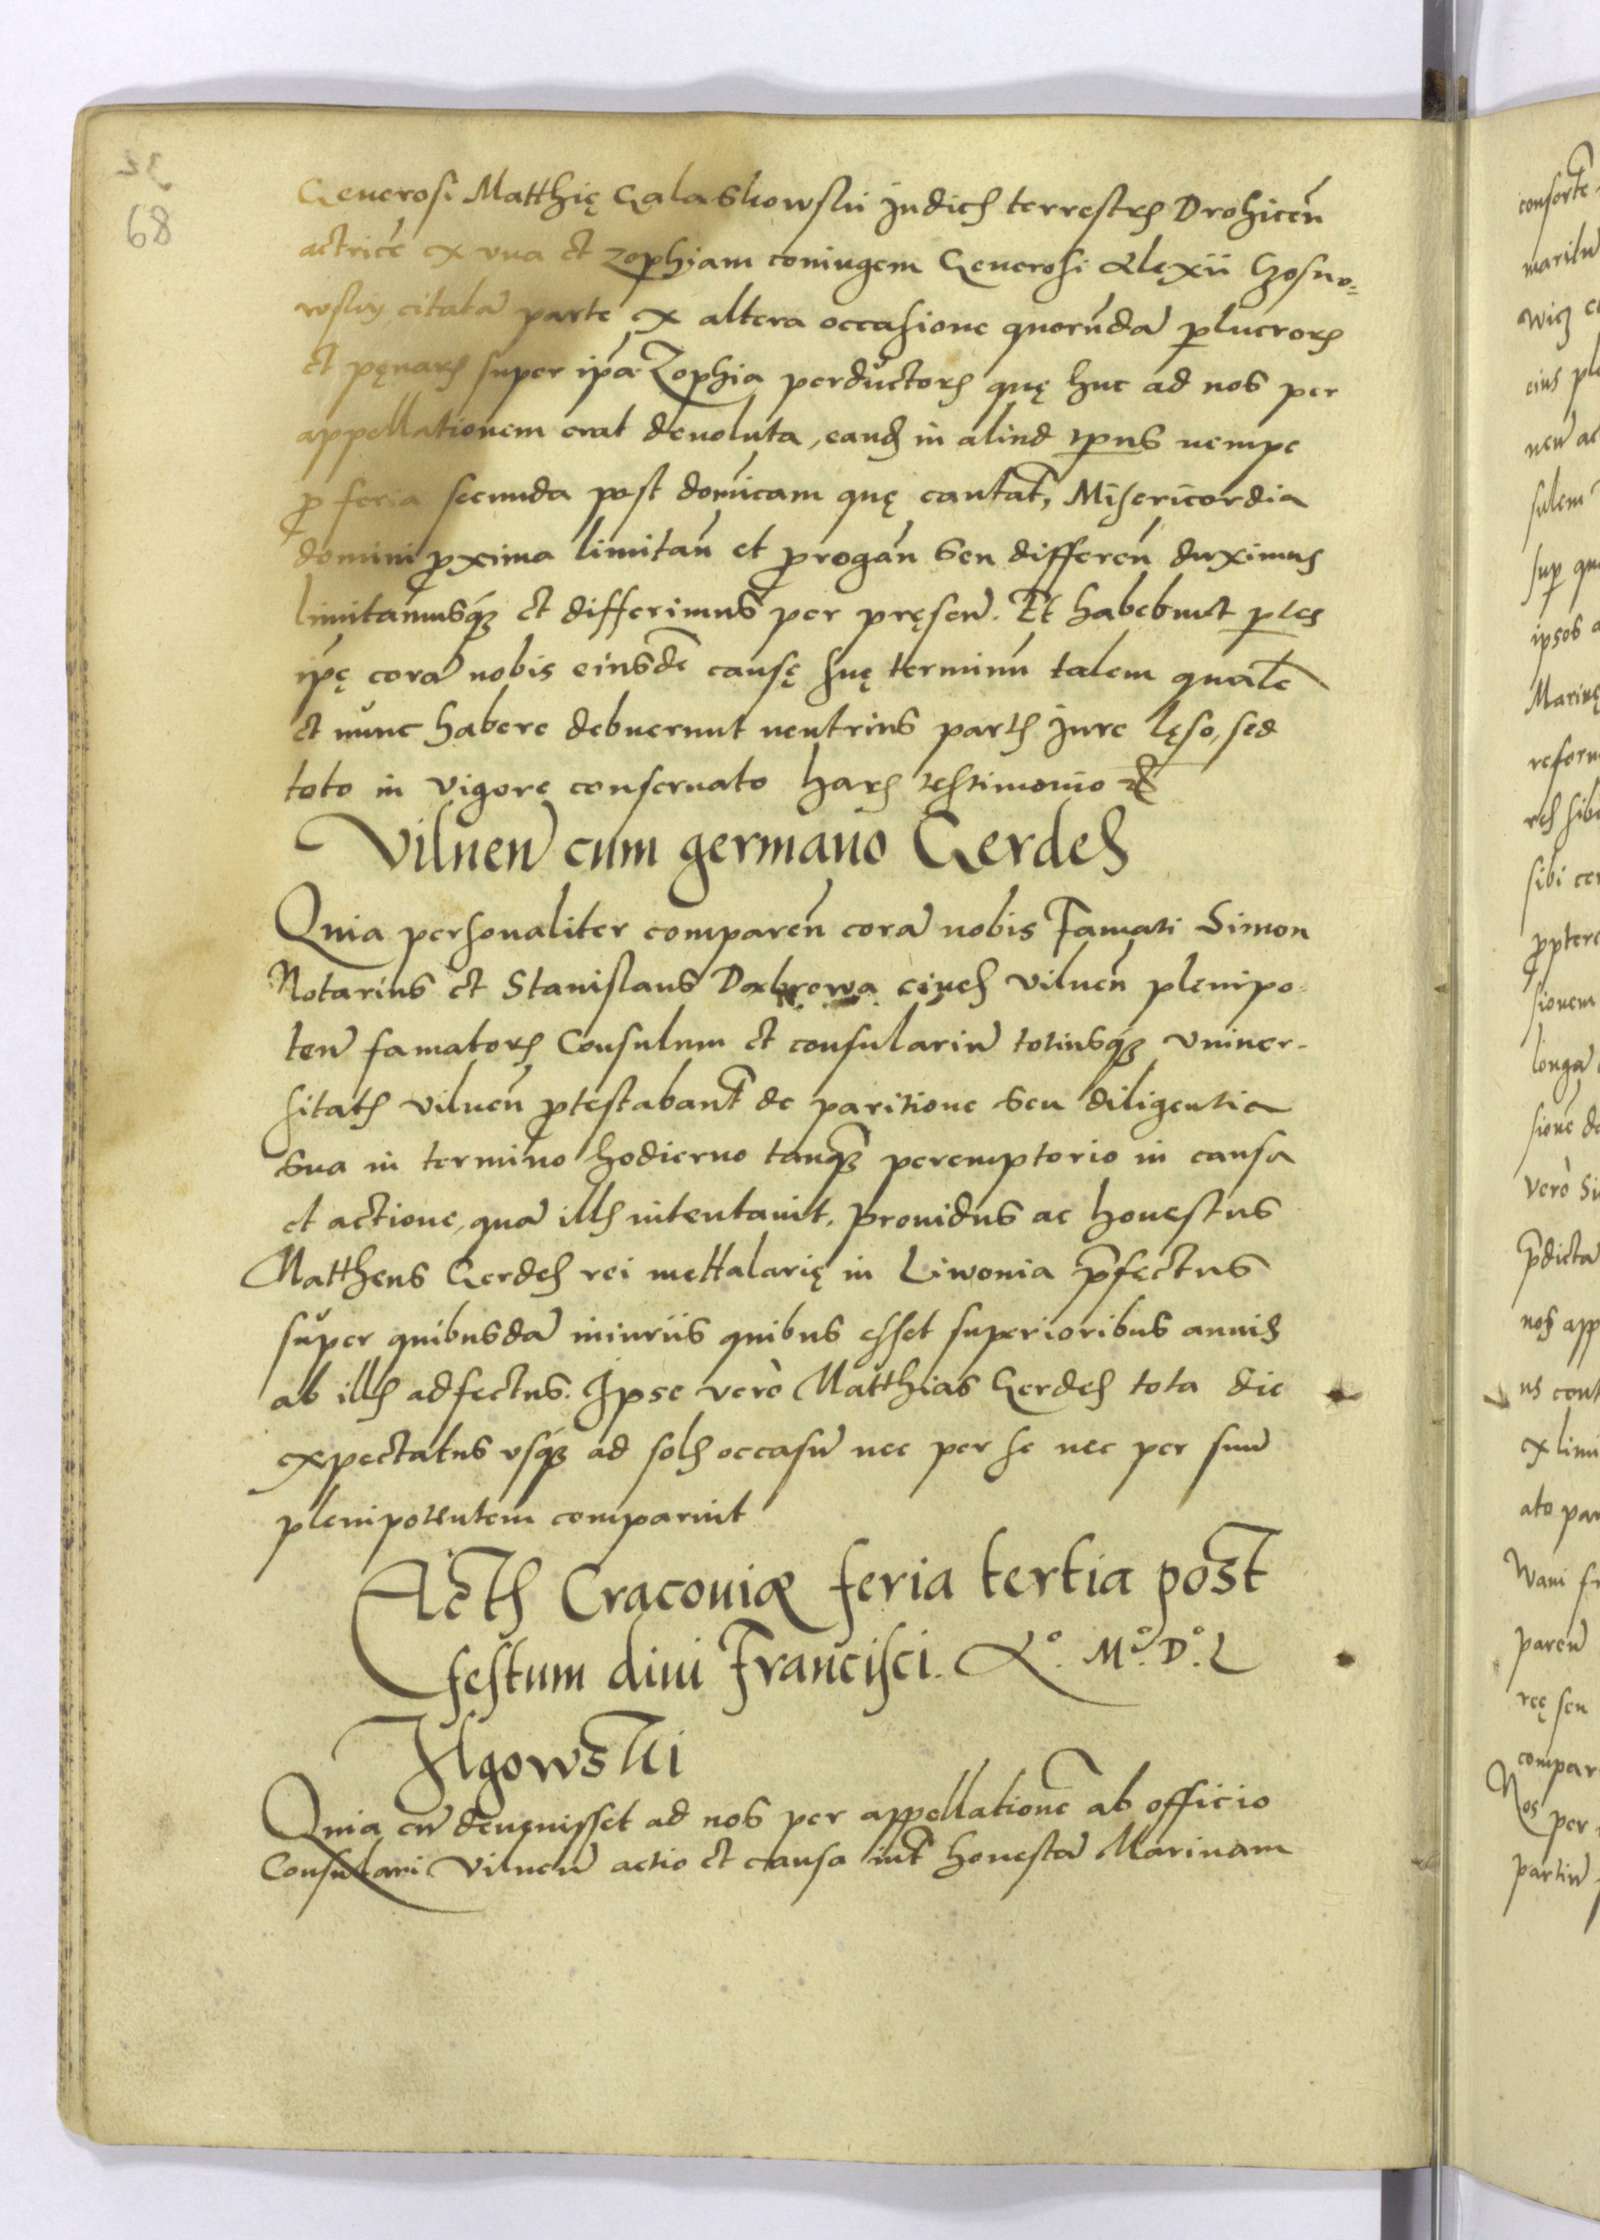 68
Generosi Matthię Galaskowskii Judicis terrestris Drohicen̄
actricē ex vna et Zophiam coniugem Generosi Alexii Hosno=
wskij citatā parte ex altera occasione quorūndā plucrorum
et pęnarum super ipā Zophia perductorum quę huc ad nos per
appellationem erat deuoluta, eand in aliud tpus nempe
pro feria secunda post domicam quę cantat, Misericordia
domini proxima limitan̄ et prorogan̄ seu differen̄ duximus
limitamusque et differimus per pręsen̄. Et habebunt ptes
ipę corā nobis eiusdē causę suę terminū talem qualē
et nunc habere debuerunt neutrius partis jure lęso, sed
toto in vigore conseruato harum testimonio etc
Vilnen̄ cum germano Gerdes
Quia personaliter comparen̄ corā nobis Famati Simon
Notarius et Stanislaus Dabrowa ciues Vilnen̄ plenipo-
ten̄ famatorum Consulum et consulariū totiusque vniuer-
sitatis Vilnen̄ protestabant de paritione seu diligentia
sua in termino hodierno tanquam peremptorio in causa
et actione, quā illis intentauit, Prouidus ac honestus
Mattheus Gerdes rei mettalarię in Liwonia pręfectus
super quibusdā iniuriis quibus esset superioribus annis
ab illis adfectus. Ipse verò Matthias Gerdes tota die
expectatus vsque ad solis occasū nec per se nec per suū
plenipotentem comparuit
Actis Cracouiæ feria tertia post
festum diui Francisci. Aº. Mº. Dº. L
Ilgowski
Quia cū deuenisset ad nos per appellationē ab officio
Consulari Vilnen̄ actio et causa int honestā Marinam